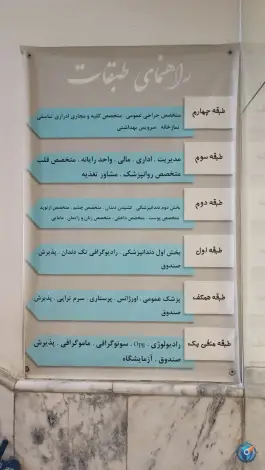 راهنمای طبقات
طبقه چهارم
متخصص جراحی عمومی . متخصص کلیه و مجاری ادراری تناسلی
نمازخانه . سرویس بهداشتی
طبقه سوم
مدیریت . اداری . مالی . واحد رایانه . متخصص قلب
متخصص روانپزشک . مشاور تغذیه
طبقه دوم
بخش دوم دندانپزشکی . کشیدن دندان . متخصص چشم . متخصص ارتوپد
متخصص پوست . متخصص داخلی . متخصص زنان و زایمان . مامایی
طبقه اول
بخش اول دندانپزشکی . رادیوگرافی تک دندان . پذیرش
صندوق
طبقه همکف
پزشک عمومی . اورژانس . پرستاری . سرم تراپی . پذیرش
صندوق
طبقه منفی یک
رادیولوژی . Opg . سونوگرافی . ماموگرافی . پذیرش
صندوق . آزمایشگاه